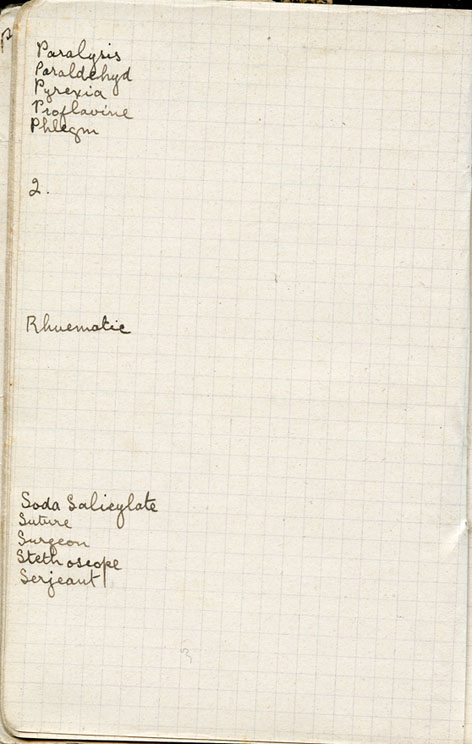 Paralysis
Paraldehyd
Pyrexia
Proflavine
Phlegm
2.
Rhuematic
Soda Salicylate
Suture
Surgeon
Stethoscope
Serjeant